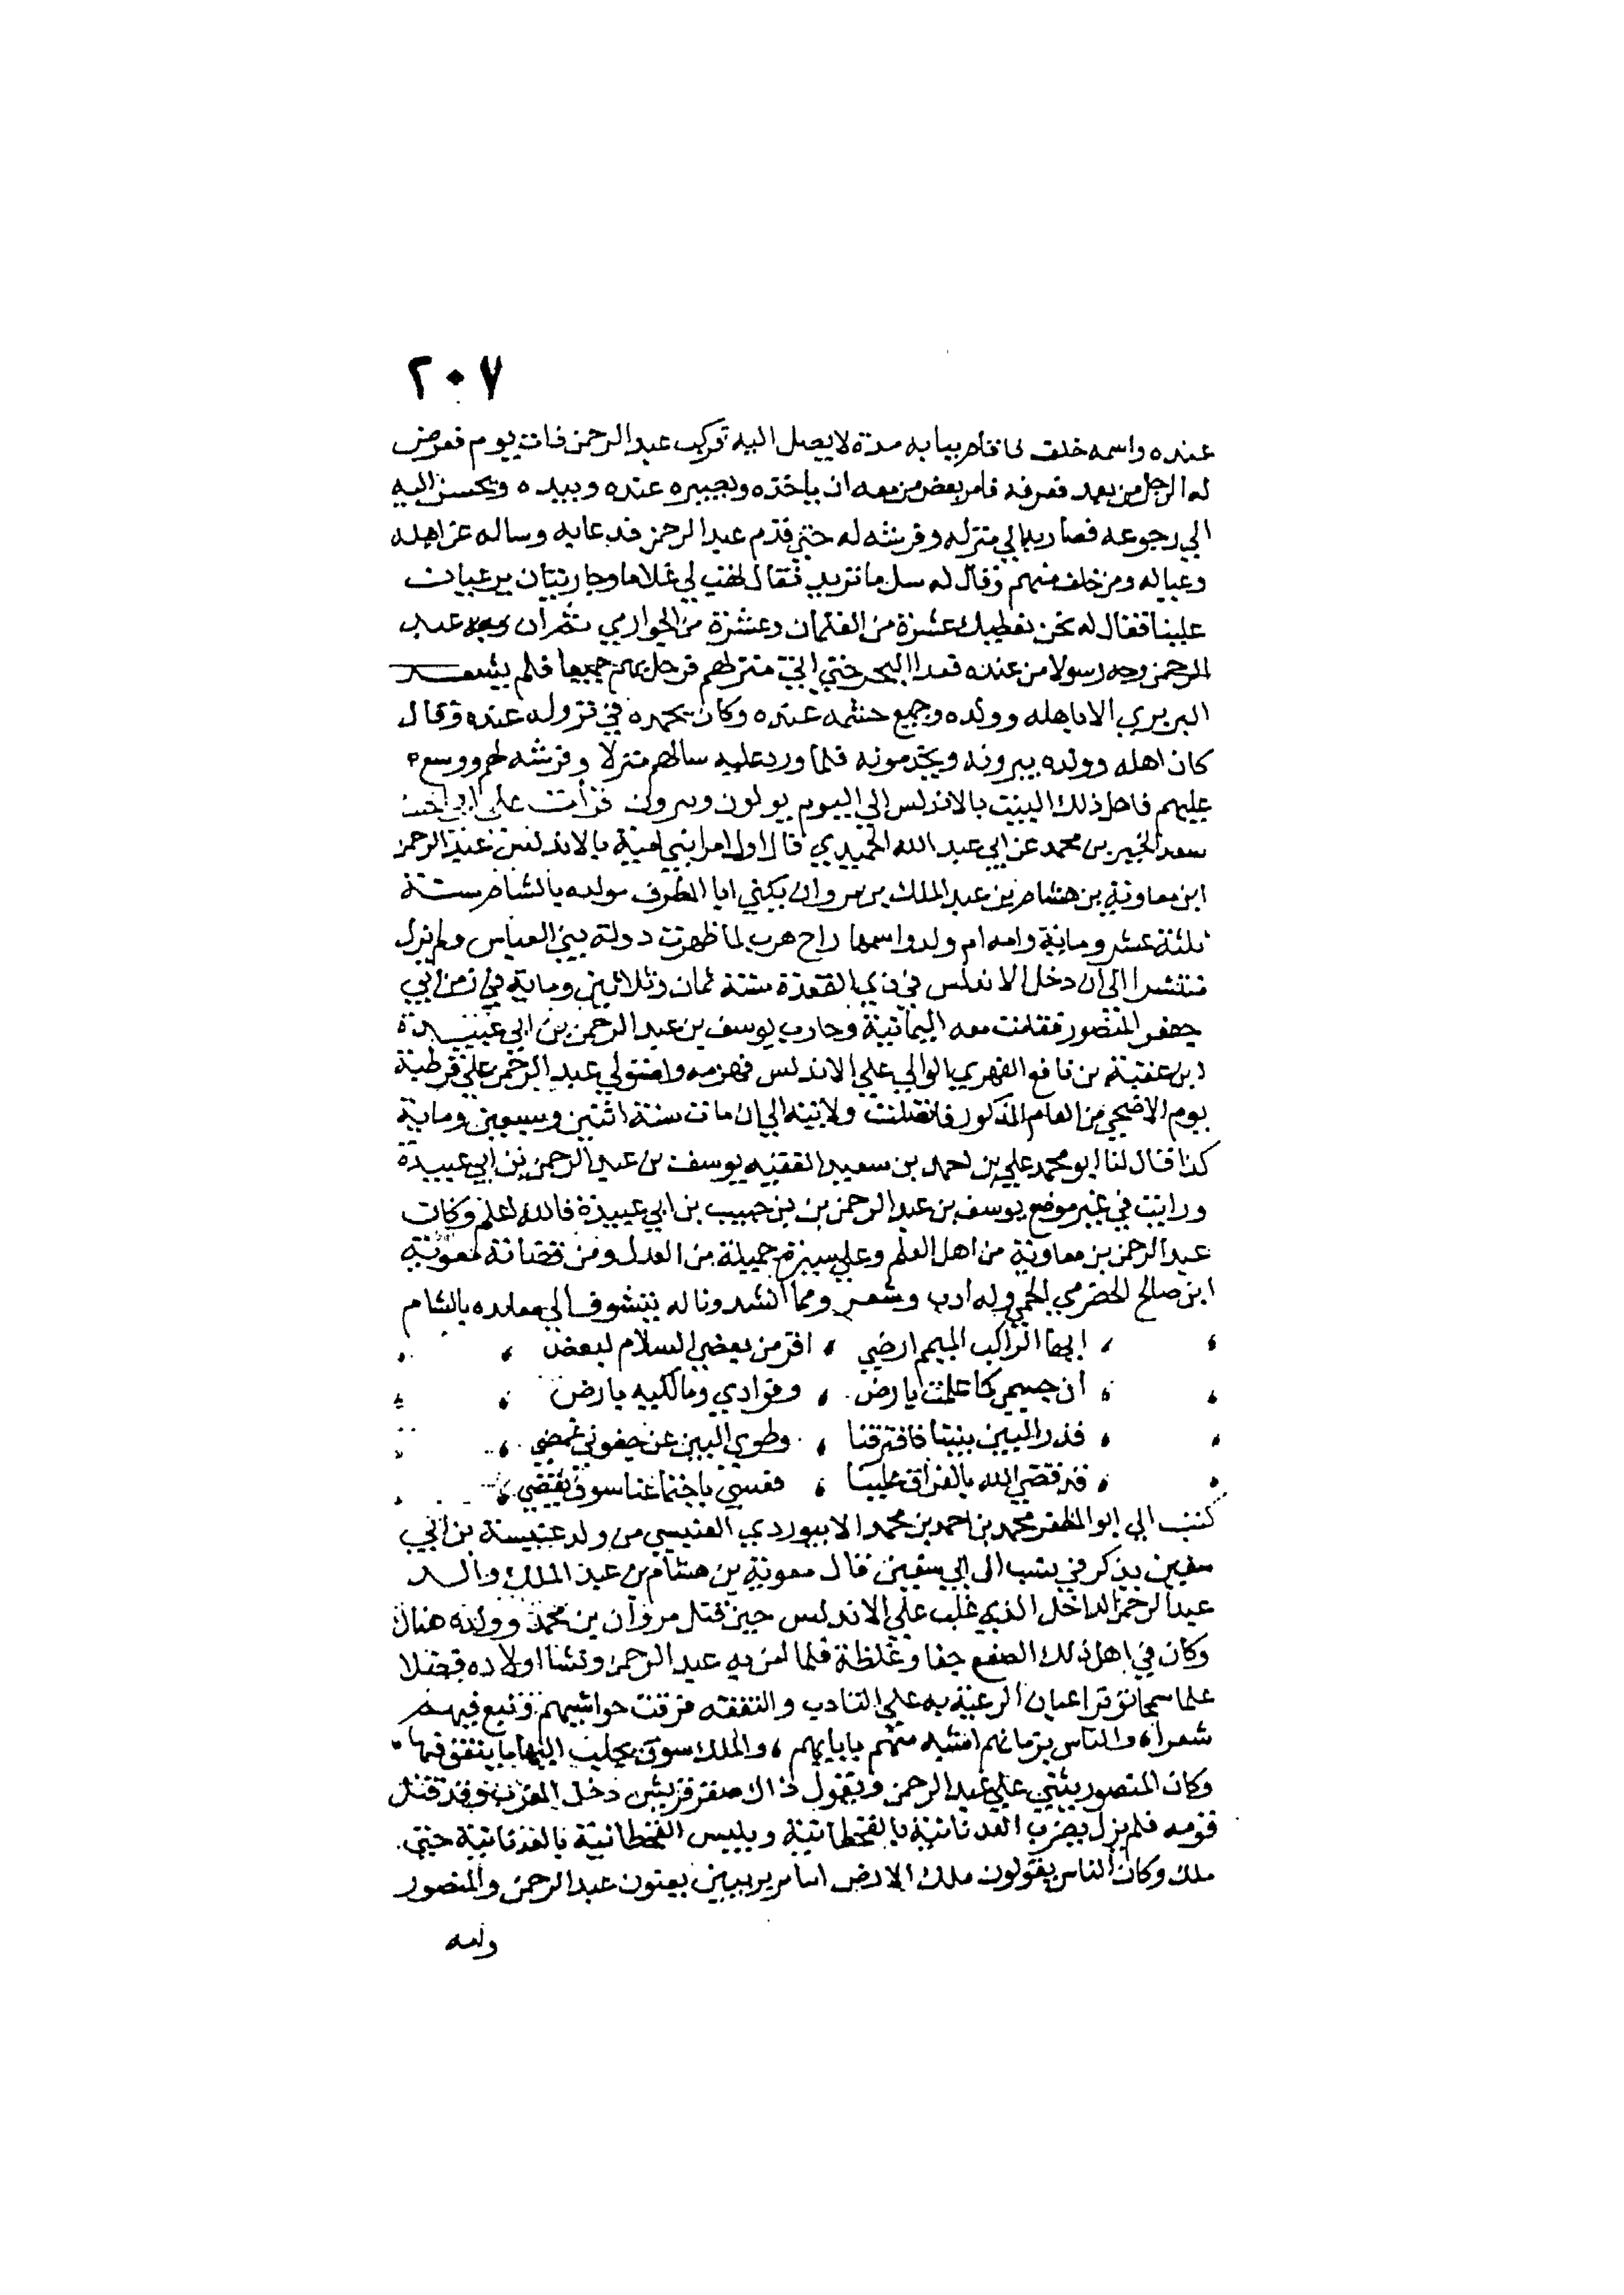 ٢٠٧
عنده واسمه خلف لما قام ببابه مدة لا يصل اليه تركب عبد الرحمن ذات يوم فعرض
له الرجل من بعد فعرفه فامر بعض من معه ان ياخذه ويجيبره عنده وبيده ويحسن اليه
الي رجوعه فصار به الي منزله وفرشه له حتي قدم عبد الرحمن فدعا به وساله عن اهله
وعياله ومن خلف منهم وقال له سل ما تريد فقال تهب لي غلاما وجاريتان يرعيان
علينا فقال له نحن نعطيك عشرة من الغلمان وعشرة من الجواري ثم ان عبد
الرحمن وجه رسولا من عنده فعدا البحر حتي اتي منزلهم فرحل بهم جميعا فلم يشعر
البربري الا باهله وولده وجميع حشمه عنده وكان يحمده في نزوله عنده وقال
كان اهله وولده يبرونه ويخدمونه فلما ورد عليه سالهم منزلا وفرشه لهم ووسع
عليهم فاهل ذلك البيت بالاندلس الي اليوم يولون ويبرون قرات علي ابي الحسن
سعد الخير بن محمد عن ابي عبد الله الحميدي قال اول امرا بني امية بالاندلس عبد الرحمن
ابن معاوية بن هشام بن عبد الملك بن مروان يكني ابا المطرف مولده بالشام سنة
ثلثة عشر وماية وامه ام ولد واسمها راح هرب لما ظهرت دولة بني العباس ولم يزل
مستترا الي ان دخل الاندلس في ذي القعدة سنة ثمان وثلاثين وماية في زمن ابي
جعفر المنصور فقامت معه اليمانية وحارب يوسف بن عبد الرحمن بن ابي عبيدة
ابن عقبة بن نافع الفهري الوالي علي الاندلس فهزمه واستولي عبد الرحمن علي قرطبة
يوم الاضحي من العام المذكور فاتصلت ولايته الي ان مات سنة اثنتين وسبعين وماية
كذا قال لنا ابو محمد علي بن احمد بن سعيد الفقيه يوسف بن عبد الرحمن بن ابي عبيدة
ورايت في غير موضع يوسف بن عبد الرحمن بن بن حبيب بن ابي عبيدة فالله اعلم وكان
عبد الرحمن بن معاوية من اهل العلم وعلي سيرة جميلة من العدل ومن قضاته معوية
ابن صالح الحضرمي الحمصي وله ادب وشعر ومما انشدونا له يتشوق الي معاهده بالشام
ايها الراكب الميمم ارضي ، اقر من بعضي السلام لبعض
ان جسمي كما علمت بارض ، وفوادي ومالكيه بارض
قدر البين بيننا فافترقنا ، وطوي البين عن جفوني غمضي
قد قضي الله بالفراق علينا ، فعسي باجتماعنا سوف يقضي
كتب الي ابو المظفر محمد بن احمد بن محمد الابيوردي العنبسي من ولد عنبسة بن ابي
سفين يذكر في نسب ال ابي سفين قال معوية بن هشام بن عبد الملك والد
عبد الرحمن الداخل الذي غلب علي الاندلس حين قتل مروان بن محمد وولده هناك
وكان في اهل ذلك الصقع جفا وغلظة فلما امر به عبد الرحمن ونشا اولاده فضلا
علما سمحا توفر اعيان الرعية به علي التادب والتفقه فرقت حواشيهم ونبع فيهم
شعراء والناس بزمانهم اشبه منهم بابايهم ، والملك سوق يجلب اليها ما ينفق فيها
وكان المنصور يثني علي عبد الرحمن ويقول ذاك صقر قريش دخل المغرب وقد قتل
قومه فلم يزل يضرب العدنانية بالقحطانية ويلبس القحطانية بالعدنانية حتي
ملك وكان الناس يقولون ملك الارض ابنا بربريتين يعنون عبد الرحمن والمنصور
وامه